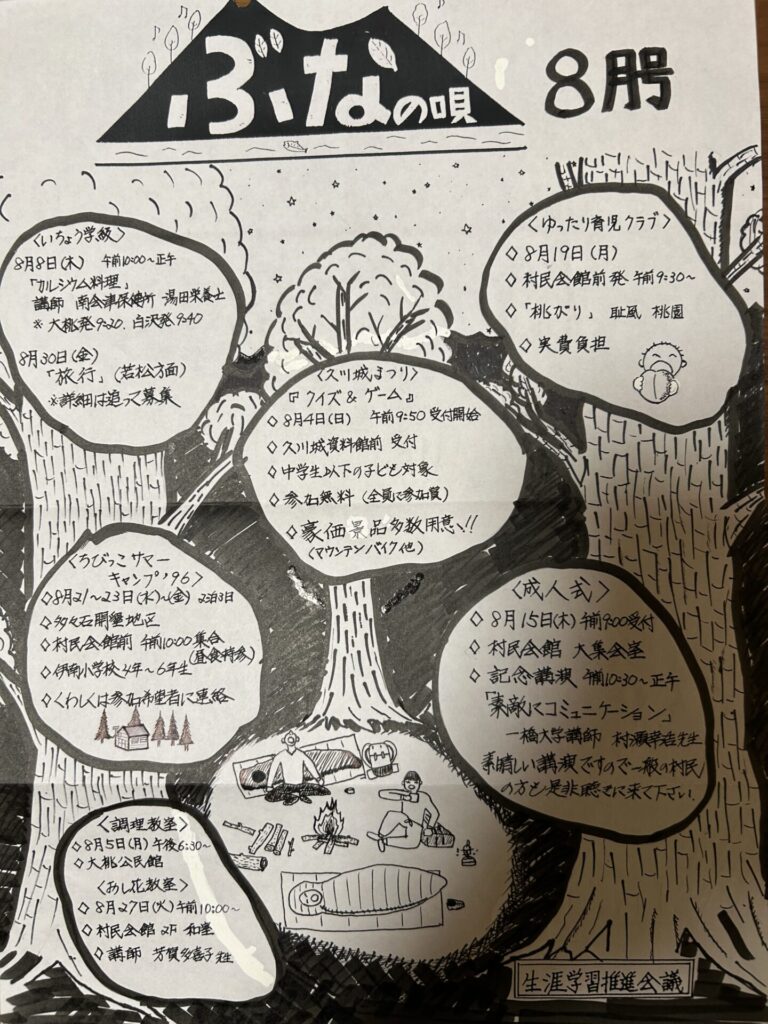 ぶなの唄
8月号
〈いちょう学級〉
8月8日(木) 午前10:00〜正午
「カルシウム料理」
講師 南会津保健所 湯田栄養士
※大桃発9:20、白沢発9:40
8月30日(金)
「旅行」(若松方面)
※詳細は追って募集
〈ゆったり育児クラブ〉
◇8月19日(月)
◇村民会館前発 午前9:30〜
◇「桃がり」 桃園
◇実費負担
〈久川城まつり〉
『クイズ&ゲーム』
◇8月4日(日) 午前9:50受付開始
◇久川城資料館前 受付
◇中学生以下の子ども対象
◇参加無料(全員に参加賞)
◇豪価景品多数用意!!
(マウンテンバイク他)
〈ちびっこサマー
キャンプ'96〉
◇8月21〜23日(水)〜(金) 2泊3日
◇多々石開墾地区
◇村民会館前 午前10:00集合
(昼食持参)
◇伊南小学校4年〜6年生
◇くわしくは参加希望者に連絡
〈成人式〉
◇8月15日(木)午前9:00受付
◇村民会館 大集会室
◇記念講演 午前10:30〜正午
「素敵にコミュニケーション」
一橋大学講師 村瀬幸浩先生
素晴しい講演ですので一般の村民
の方も是非聴きに来て下さい。
〈調理教室〉
◇8月5日(月)午後6:30〜
◇大桃公民館
〈おし花教室〉
◇8月27日(火)午前10:00〜
◇村民会館 2F 和室
◇講師 芳賀多喜子先生
生涯学習推進会議